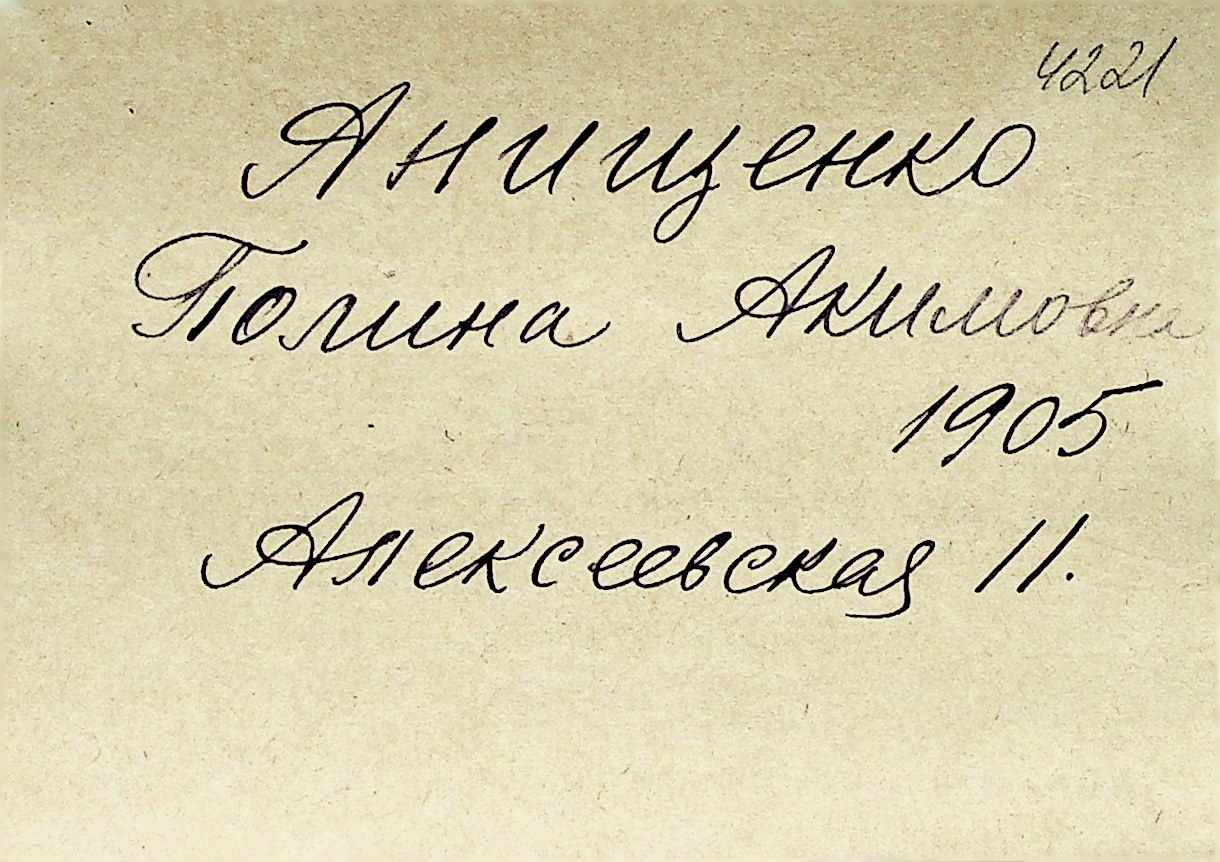 4221
Анищенко
Полина Акимовна
1905
Алексеевская 11.